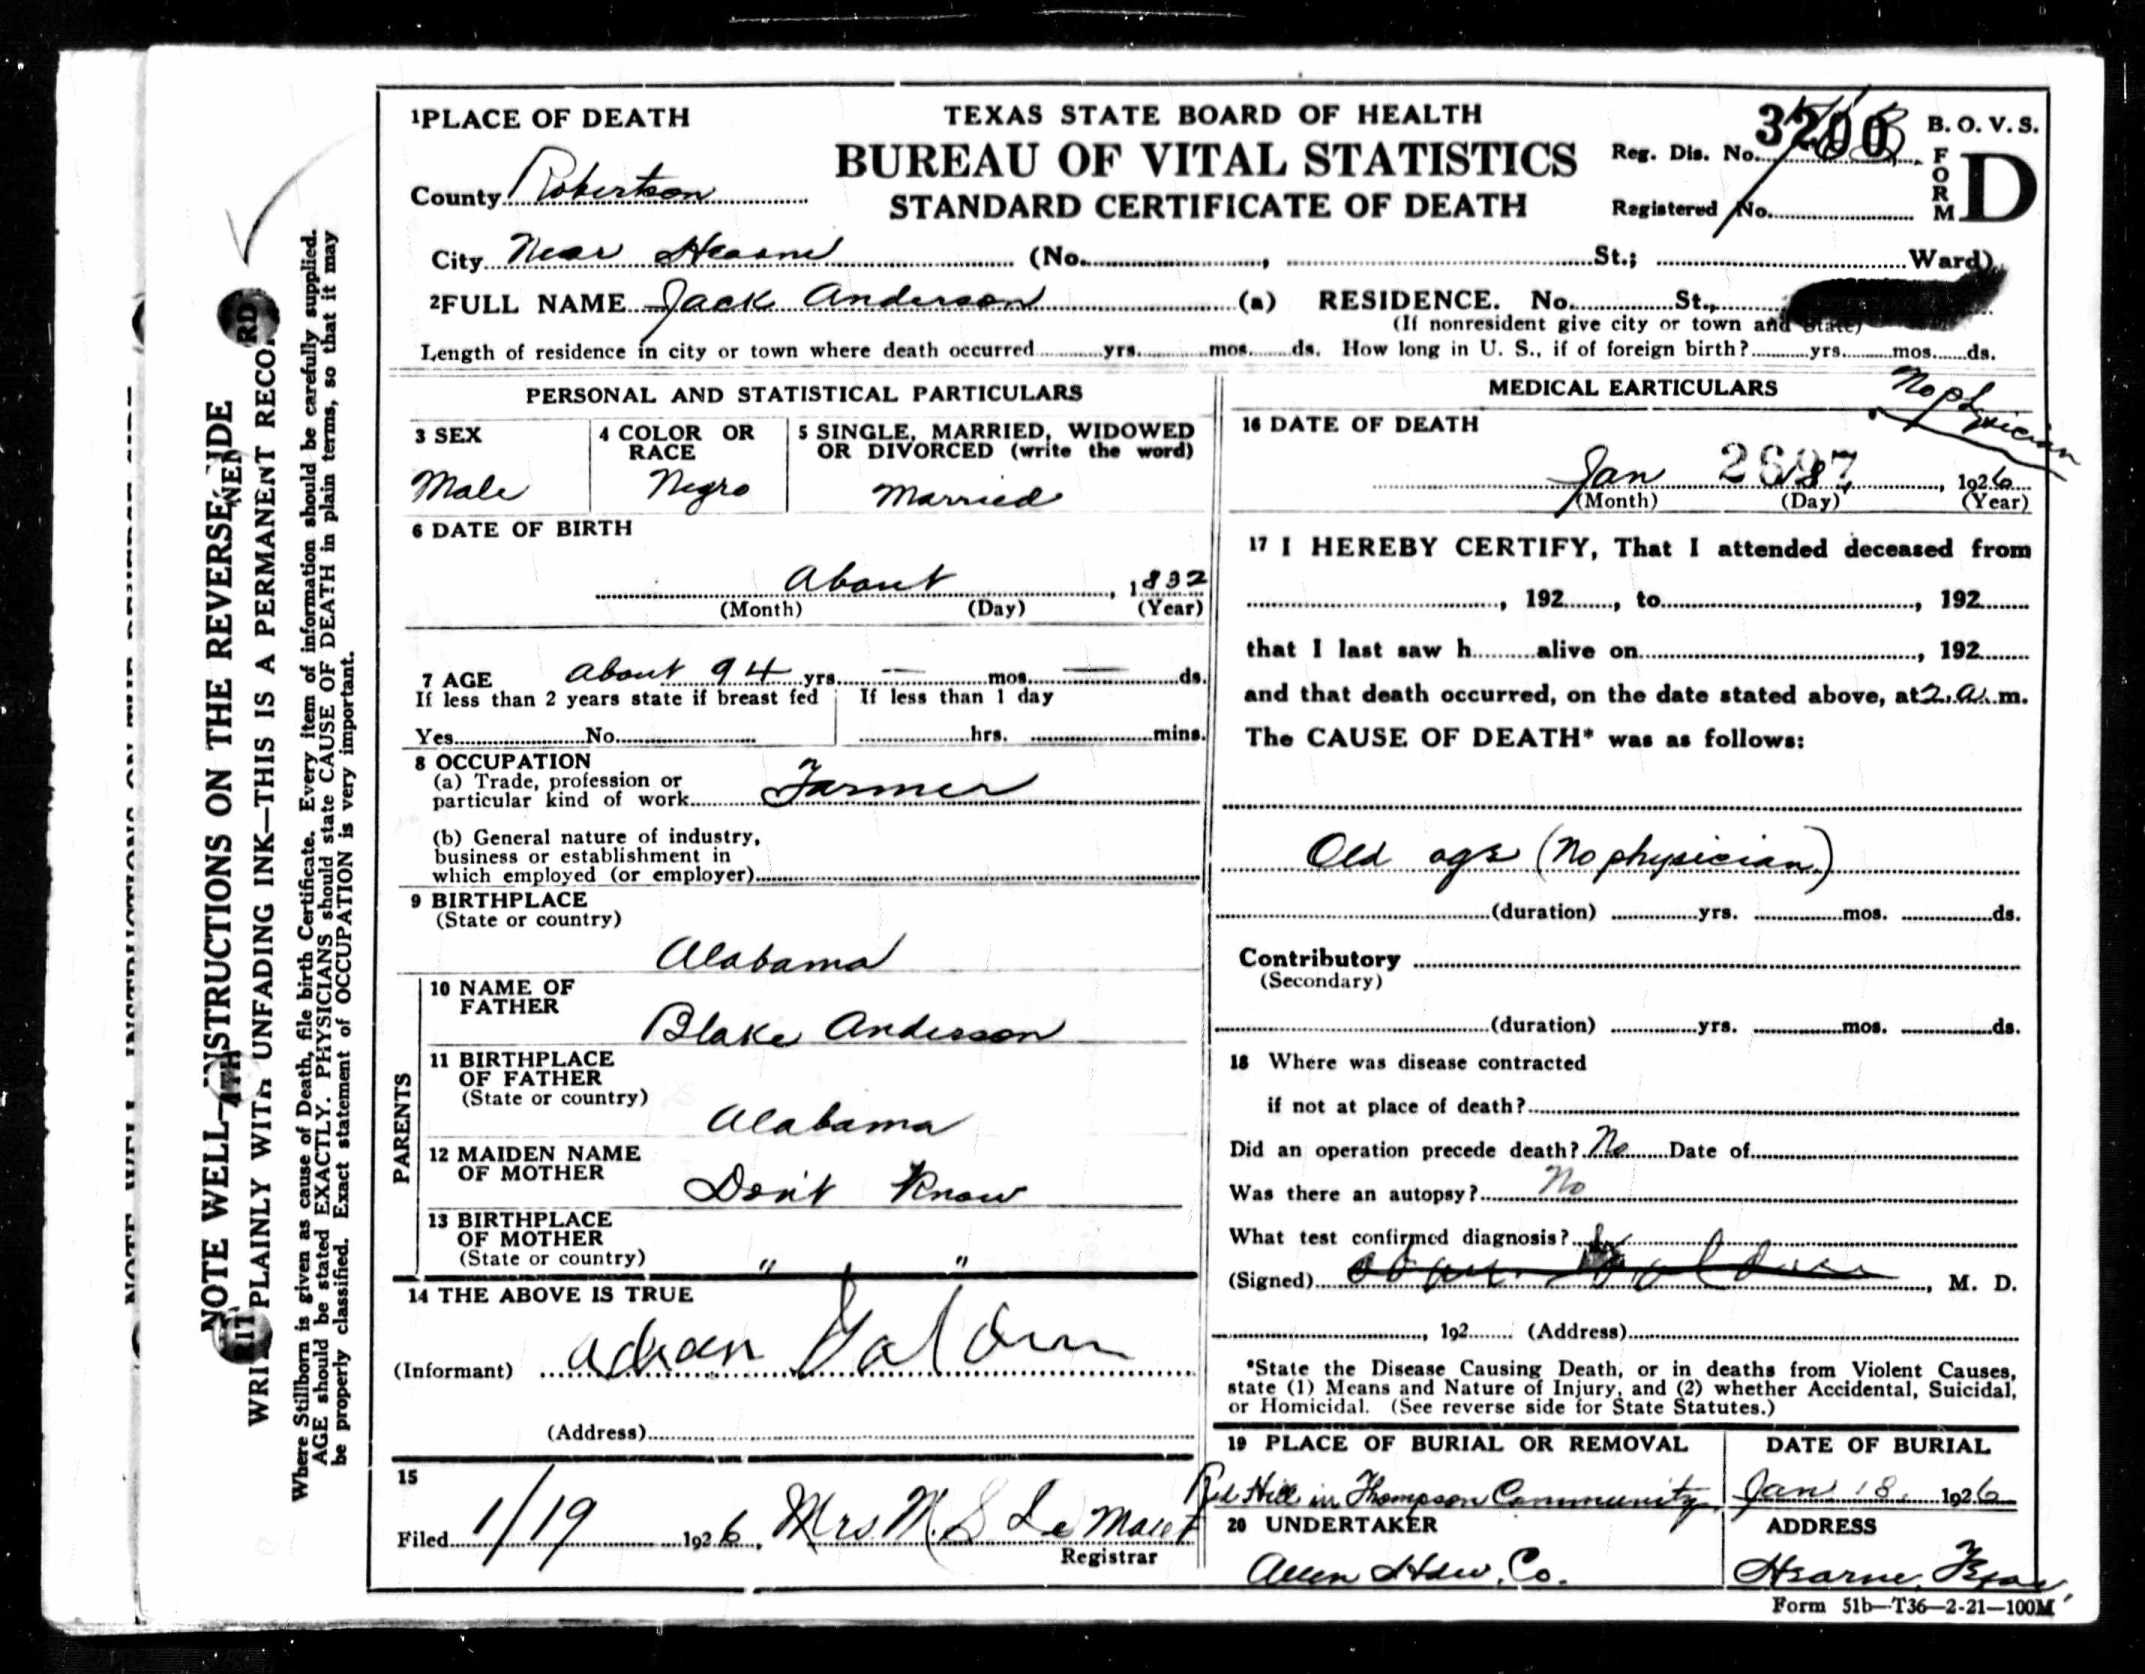 1 PLACE OF DEATH
TEXAS STATE BOARD OF HEALTH
BUREAU OF VITAL STATISTICS
STANDARD CERTIFICATE OF DEATH
3200
B. O. V. S.
FORM D
Reg. Dis. No.
Registered No.
County Robertson
City Near Hearne (No. , St.; Ward)
2 FULL NAME Jack Anderson (a) RESIDENCE. No. St.,
(If nonresident give city or town and State)
Length of residence in city or town where death occurred yrs. mos. ds. How long in U. S., if of foreign birth? yrs. mos. ds.
PERSONAL AND STATISTICAL PARTICULARS
3 SEX
Male
4 COLOR OR RACE
Negro
5 SINGLE, MARRIED, WIDOWED
OR DIVORCED (write the word)
Married
6 DATE OF BIRTH
About , 1832
(Month) (Day) (Year)
7 AGE About 94 yrs. — mos. — ds.
If less than 2 years state if breast fed
Yes No
If less than 1 day
hrs. mins.
8 OCCUPATION
(a) Trade, profession or
particular kind of work Farmer
(b) General nature of industry,
business or establishment in
which employed (or employer)
9 BIRTHPLACE
(State or country)
Alabama
PARENTS
10 NAME OF
FATHER
Blake Anderson
11 BIRTHPLACE
OF FATHER
(State or country)
Alabama
12 MAIDEN NAME
OF MOTHER
Don't Know
13 BIRTHPLACE
OF MOTHER
(State or country) " "
14 THE ABOVE IS TRUE
(Informant)
(Address)
15
Filed 1/19 1926, Mrs M. S.
Registrar
MEDICAL EARTICULARS
No physician
16 DATE OF DEATH
2697
Jan 18, 1926
(Month) (Day) (Year)
17 I HEREBY CERTIFY, That I attended deceased from
, 192 , to , 192
that I last saw h alive on , 192
and that death occurred, on the date stated above, at 2. a. m.
The CAUSE OF DEATH* was as follows:
Old age (No physician)
(duration) yrs. mos. ds.
Contributory
(Secondary)
(duration) yrs. mos. ds.
18 Where was disease contracted
if not at place of death?
Did an operation precede death? No Date of
Was there an autopsy? No
What test confirmed diagnosis?
(Signed) , M. D.
, 192 (Address)
*State the Disease Causing Death, or in deaths from Violent Causes,
state (1) Means and Nature of Injury, and (2) whether Accidental, Suicidal,
or Homicidal. (See reverse side for State Statutes.)
19 PLACE OF BURIAL OR REMOVAL
Red Hill in Thompson Community
DATE OF BURIAL
Jan 18, 1926
20 UNDERTAKER
Allen Hdw. Co.
ADDRESS
Hearne, Texas,
Form 51b—T36—2-21—100M
NOTE WELL—INSTRUCTIONS ON THE REVERSE SIDE
WRITE PLAINLY WITH UNFADING INK—THIS IS A PERMANENT RECORD
Where Stillborn is given as cause of Death, file birth Certificate. Every item of information should be carefully supplied.
AGE should be stated EXACTLY. PHYSICIANS should state CAUSE OF DEATH in plain terms, so that it may
be properly classified. Exact statement of OCCUPATION is very important.